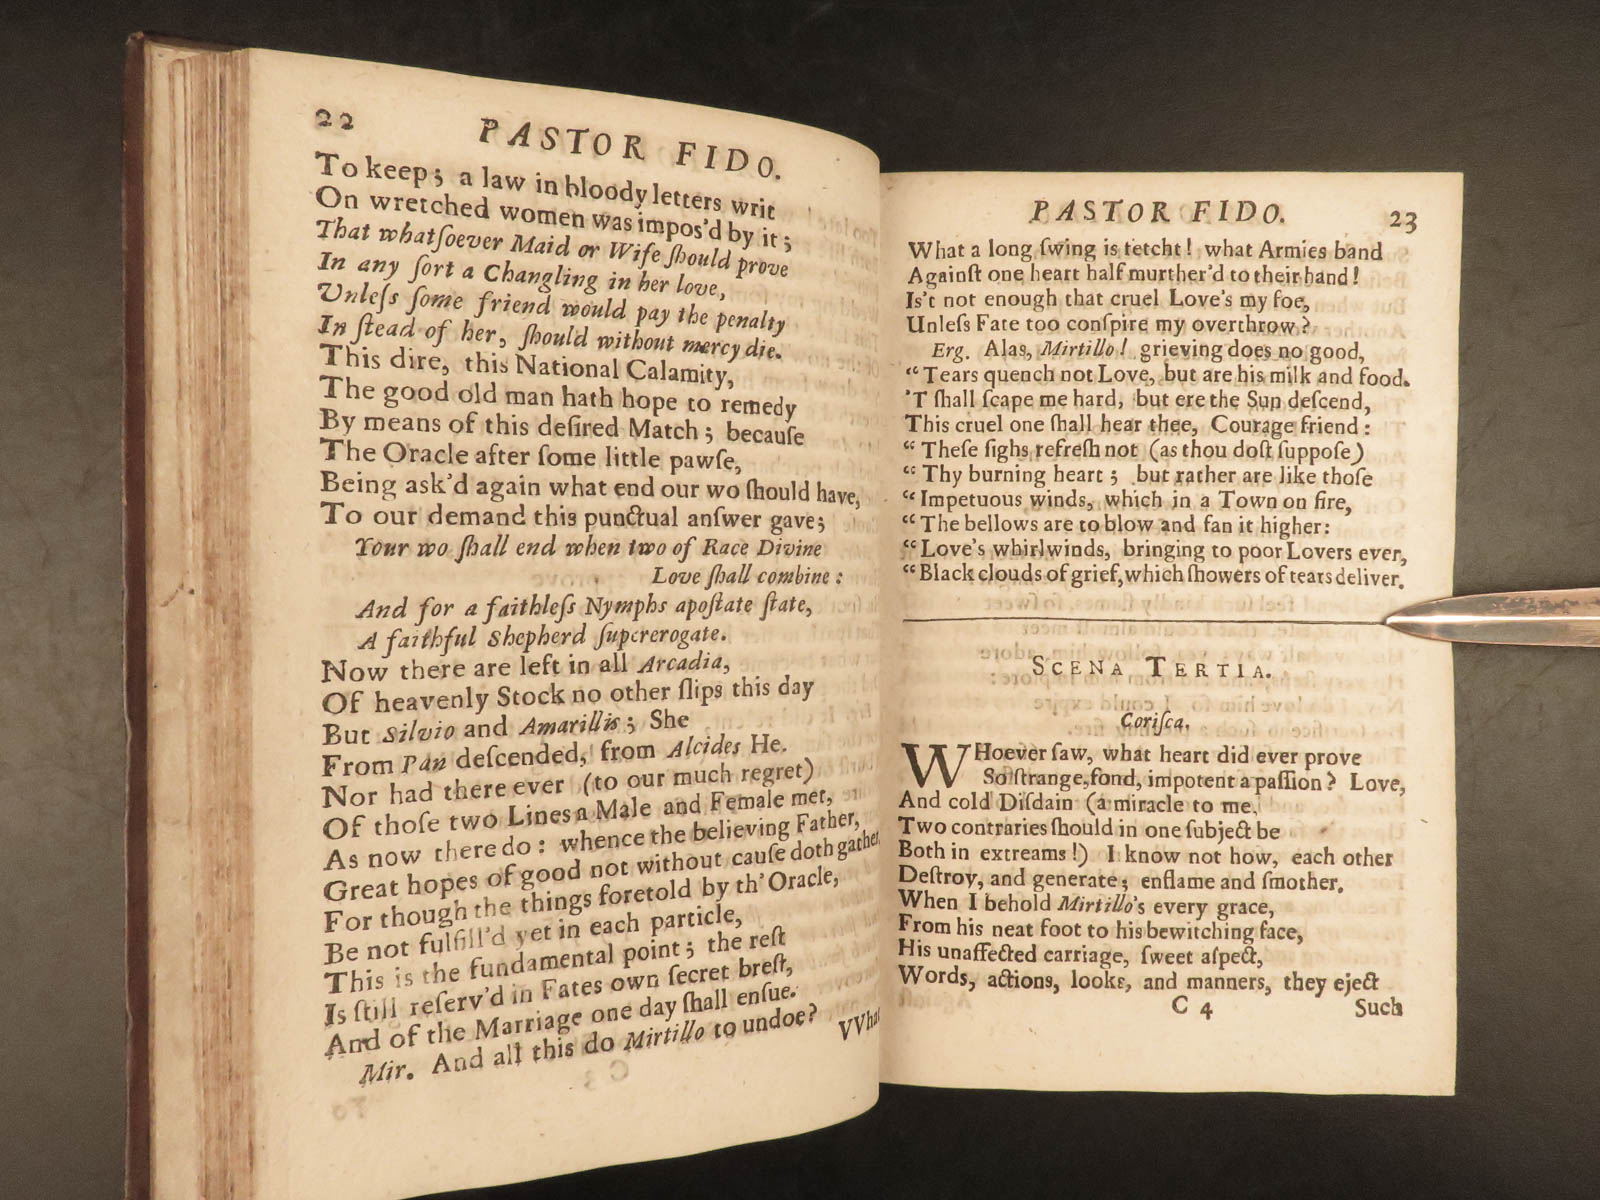 22
PASTOR FIDO.
To keep; a law in bloody letters writ
On wretched women was impos'd by it;
That whatſoever Maid or Wife ſhould prove
In any ſort a Changling in her love,
Unleſs ſome friend would pay the penalty
In ſtead of her, ſhould without mercy die.
This dire, this National Calamity,
The good old man hath hope to remedy
By means of this deſired Match; becauſe
The Oracle after ſome little pawſe,
Being ask'd again what end our wo ſhould have,
To our demand this punctual anſwer gave;
Your wo ſhall end when two of Race Divine
Love ſhall combine:
And for a faithleſs Nymphs apoſtate ſtate,
A faithful Shepherd ſupererogate.
Now there are left in all Arcadia,
Of heavenly Stock no other ſlips this day
But Silvio and Amarillis; She
From Pan deſcended, from Alcides He.
Nor had there ever (to our much regret)
Of thoſe two Lines a Male and Female met,
As now there do: whence the believing Father,
Great hopes of good not without cauſe doth gather.
For though the things foretold by th' Oracle,
Be not fulfill'd yet in each particle,
This is the fundamental point; the reſt
Is ſtill reſerv'd in Fates own ſecret breſt,
And of the Marriage one day ſhall enſue.
Mir. And all this do Mirtillo to undoe?
VVhat
PASTOR FIDO.
23
What a long ſwing is fetcht! what Armies band
Againſt one heart half murther'd to their hand!
Is't not enough that cruel Love's my foe,
Unleſs Fate too conſpire my overthrow?
Erg. Alas, Mirtillo! grieving does no good,
“Tears quench not Love, but are his milk and food.
'T ſhall ſcape me hard, but ere the Sun deſcend,
This cruel one ſhall hear thee, Courage friend:
“ Theſe ſighs refreſh not (as thou doſt ſuppoſe)
“ Thy burning heart; but rather are like thoſe
“ Impetuous winds, which in a Town on fire,
“ The bellows are to blow and fan it higher:
“ Love's whirlwinds, bringing to poor Lovers ever,
“ Black clouds of grief, which ſhowers of tears deliver.
SCENA TERTIA.
Coriſca.
WHoever ſaw, what heart did ever prove
So ſtrange, fond, impotent a paſſion? Love,
And cold Diſdain (a miracle to me,
Two contraries ſhould in one ſubject be
Both in extreams!) I know not how, each other
Deſtroy, and generate; enflame and ſmother.
When I behold Mirtillo's every grace,
From his neat foot to his bewitching face,
His unaffected carriage, ſweet aſpect,
Words, actions, looks, and manners, they eject
C 4
Such